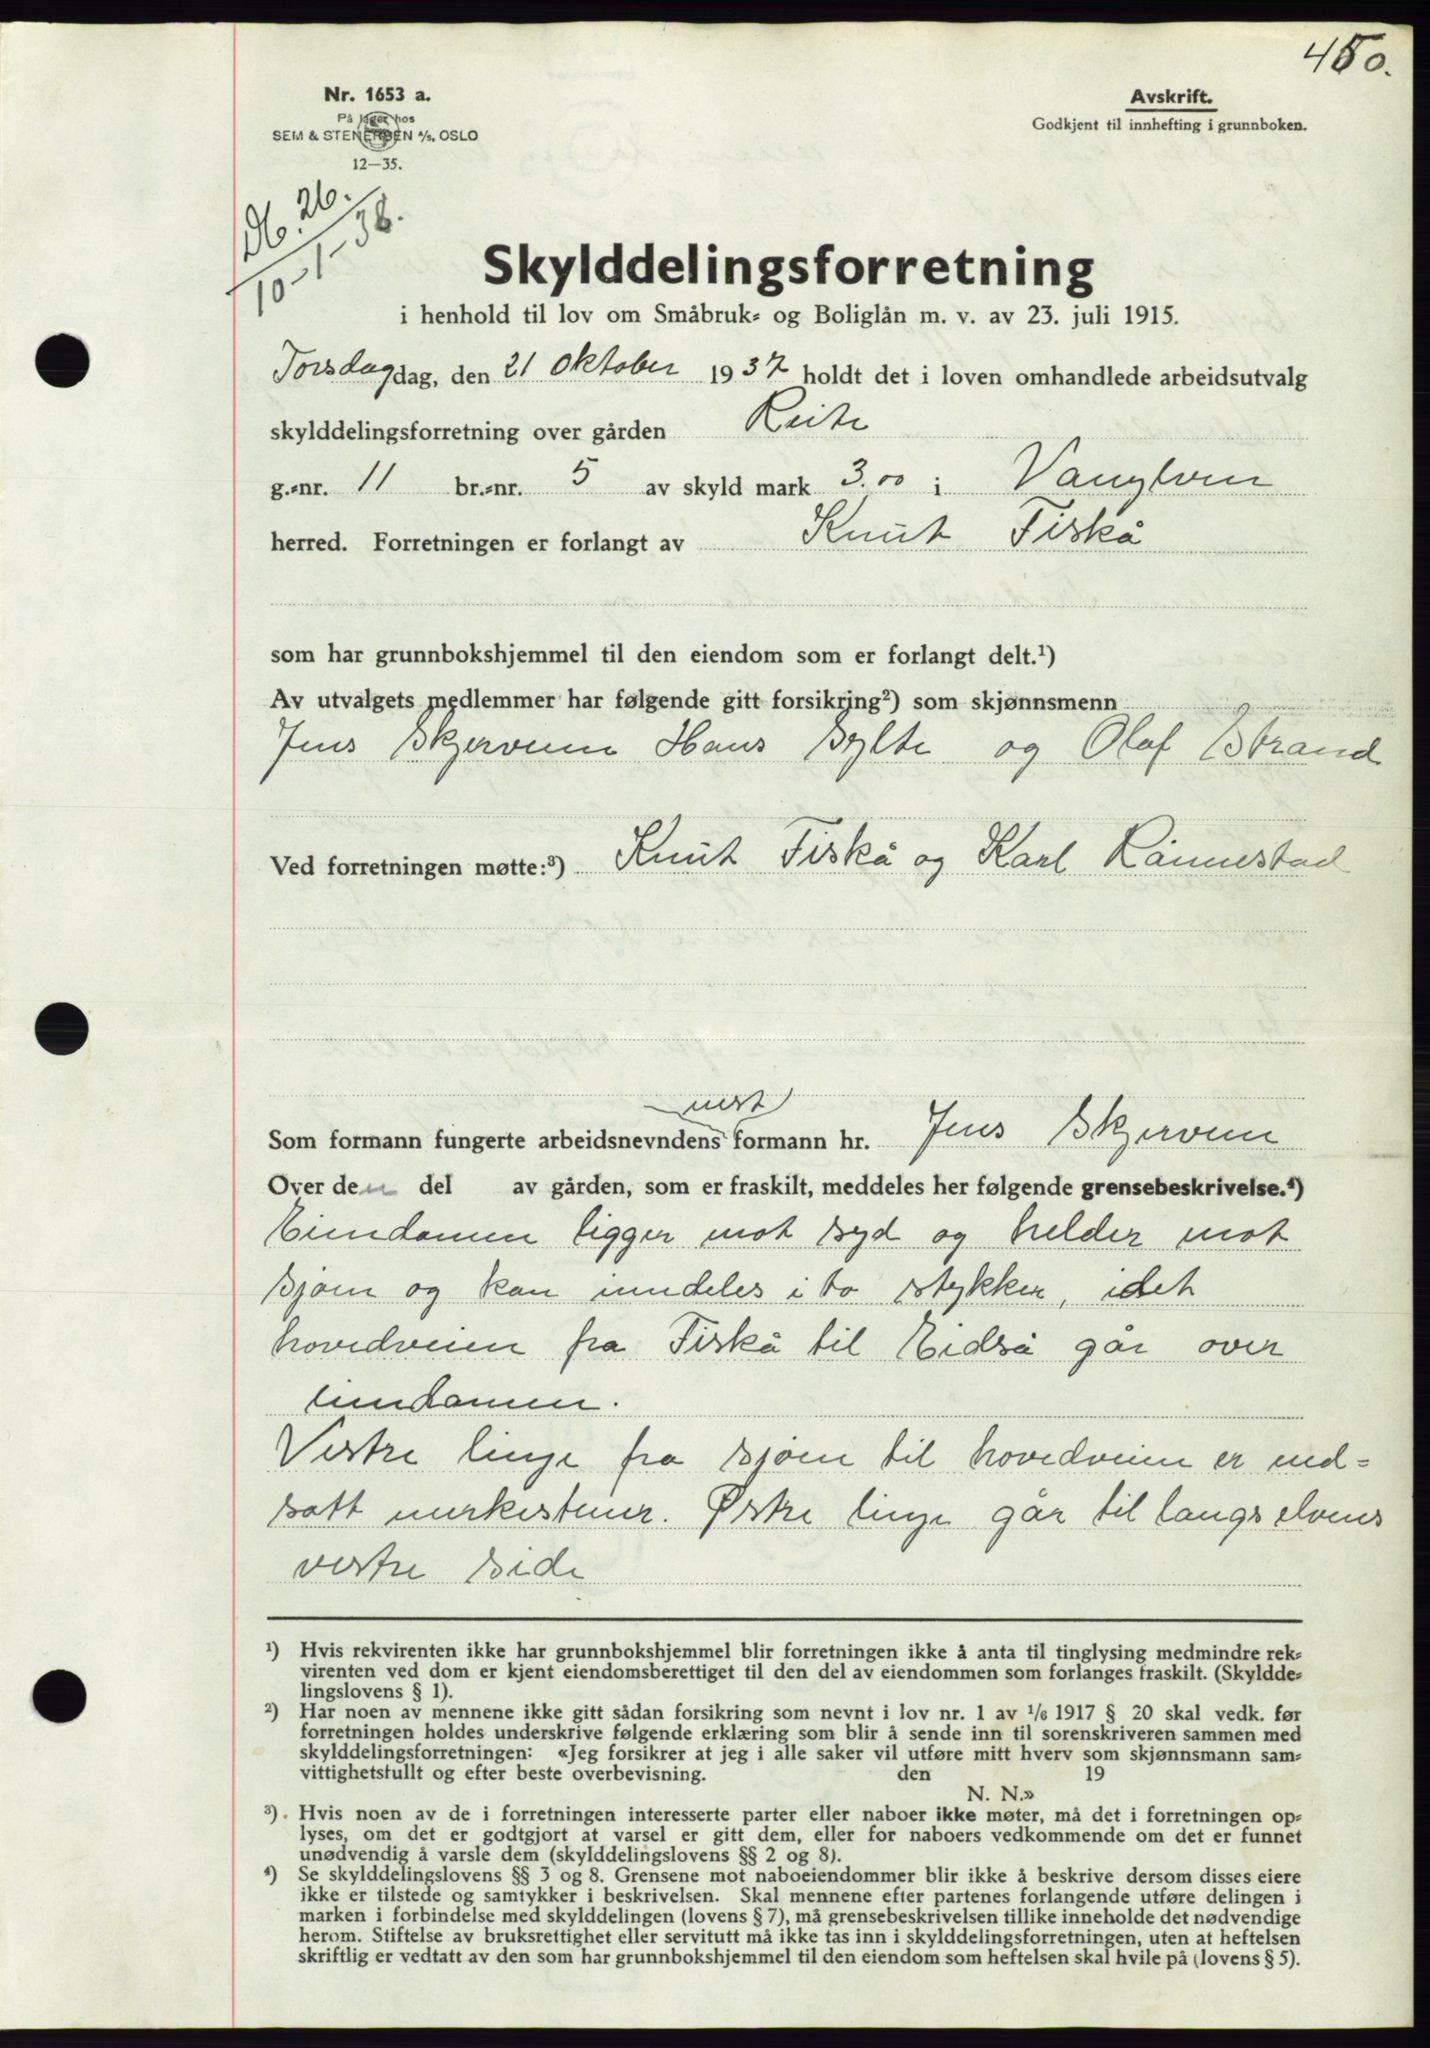 450.
Nr. 1653 a.
På lager hos
SEM & STENERSEN A/S. OSLO
12—35.
Avskrift.
Godkjent til innhefting i grunnboken.
Db. 26.
10-1-38.
Skylddelingsforretning
i henhold til lov om Småbruk- og Boliglån m. v. av 23. juli 1915.
Torsdag dag, den 21 Oktober 1937 holdt det i loven omhandlede arbeidsutvalg
skylddelingsforretning over gården Reite
g.-nr. 11 br.-nr. 5 av skyld mark 3.00 i Vanylven
herred. Forretningen er forlangt av Knut Fiskå
som har grunnbokshjemmel til den eiendom som er forlangt delt.¹)
Av utvalgets medlemmer har følgende gitt forsikring²) som skjønnsmenn
Jens Skjerven Hans Sylte og Olaf Strand
Ved forretningen møtte:³) Knut Fiskå og Karl Rånnestad
nest
Som formann fungerte arbeidsnevndens formann hr. Jens Skjerven
Over den del av gården, som er fraskilt, meddeles her følgende grensebeskrivelse.⁴)
Eiendomen ligger mot syd og helder mot
sjøen og kan inndeles i to stykker, idet
hovedveien fra Fiskå til Eidså går over
eiendomen.
Vestre linje fra sjøen til hovedveien er ned-
satt merkestener. Østre linje går til langs elvens
vestre side
¹) Hvis rekvirenten ikke har grunnbokshjemmel blir forretningen ikke å anta til tinglysing medmindre rek-
virenten ved dom er kjent eiendomsberettiget til den del av eiendommen som forlanges fraskilt. (Skyldde-
lingslovens § 1).
²) Har noen av mennene ikke gitt sådan forsikring som nevnt i lov nr. 1 av 1/6 1917 § 20 skal vedk. før
forretningen holdes underskrive følgende erklæring som blir å sende inn til sorenskriveren sammen med
skylddelingsforretningen: «Jeg forsikrer at jeg i alle saker vil utføre mitt hverv som skjønnsmann sam-
vittighetsfullt og efter beste overbevisning. den 19
N. N.»
³). Hvis noen av de i forretningen interesserte parter eller naboer ikke møter, må det i forretningen op-
lyses, om det er godtgjort at varsel er gitt dem, eller for naboers vedkommende om det er funnet
unødvendig å varsle dem (skylddelingslovens §§ 2 og 8).
⁴) Se skylddelingslovens §§ 3 og 8. Grensene mot naboeiendommer blir ikke å beskrive dersom disses eiere
ikke er tilstede og samtykker i beskrivelsen. Skal mennene efter partenes forlangende utføre delingen i
marken i forbindelse med skylddelingen (lovens § 7), må grensebeskrivelsen tillike inneholde det nødvendige
herom. Stiftelse av bruksrettighet eller servitutt må ikke tas inn i skylddelingsforretningen, uten at heftelsen
skriftlig er vedtatt av den som har grunnbokshjemmel til den eiendom som heftelsen skal hvile på (lovens § 5).